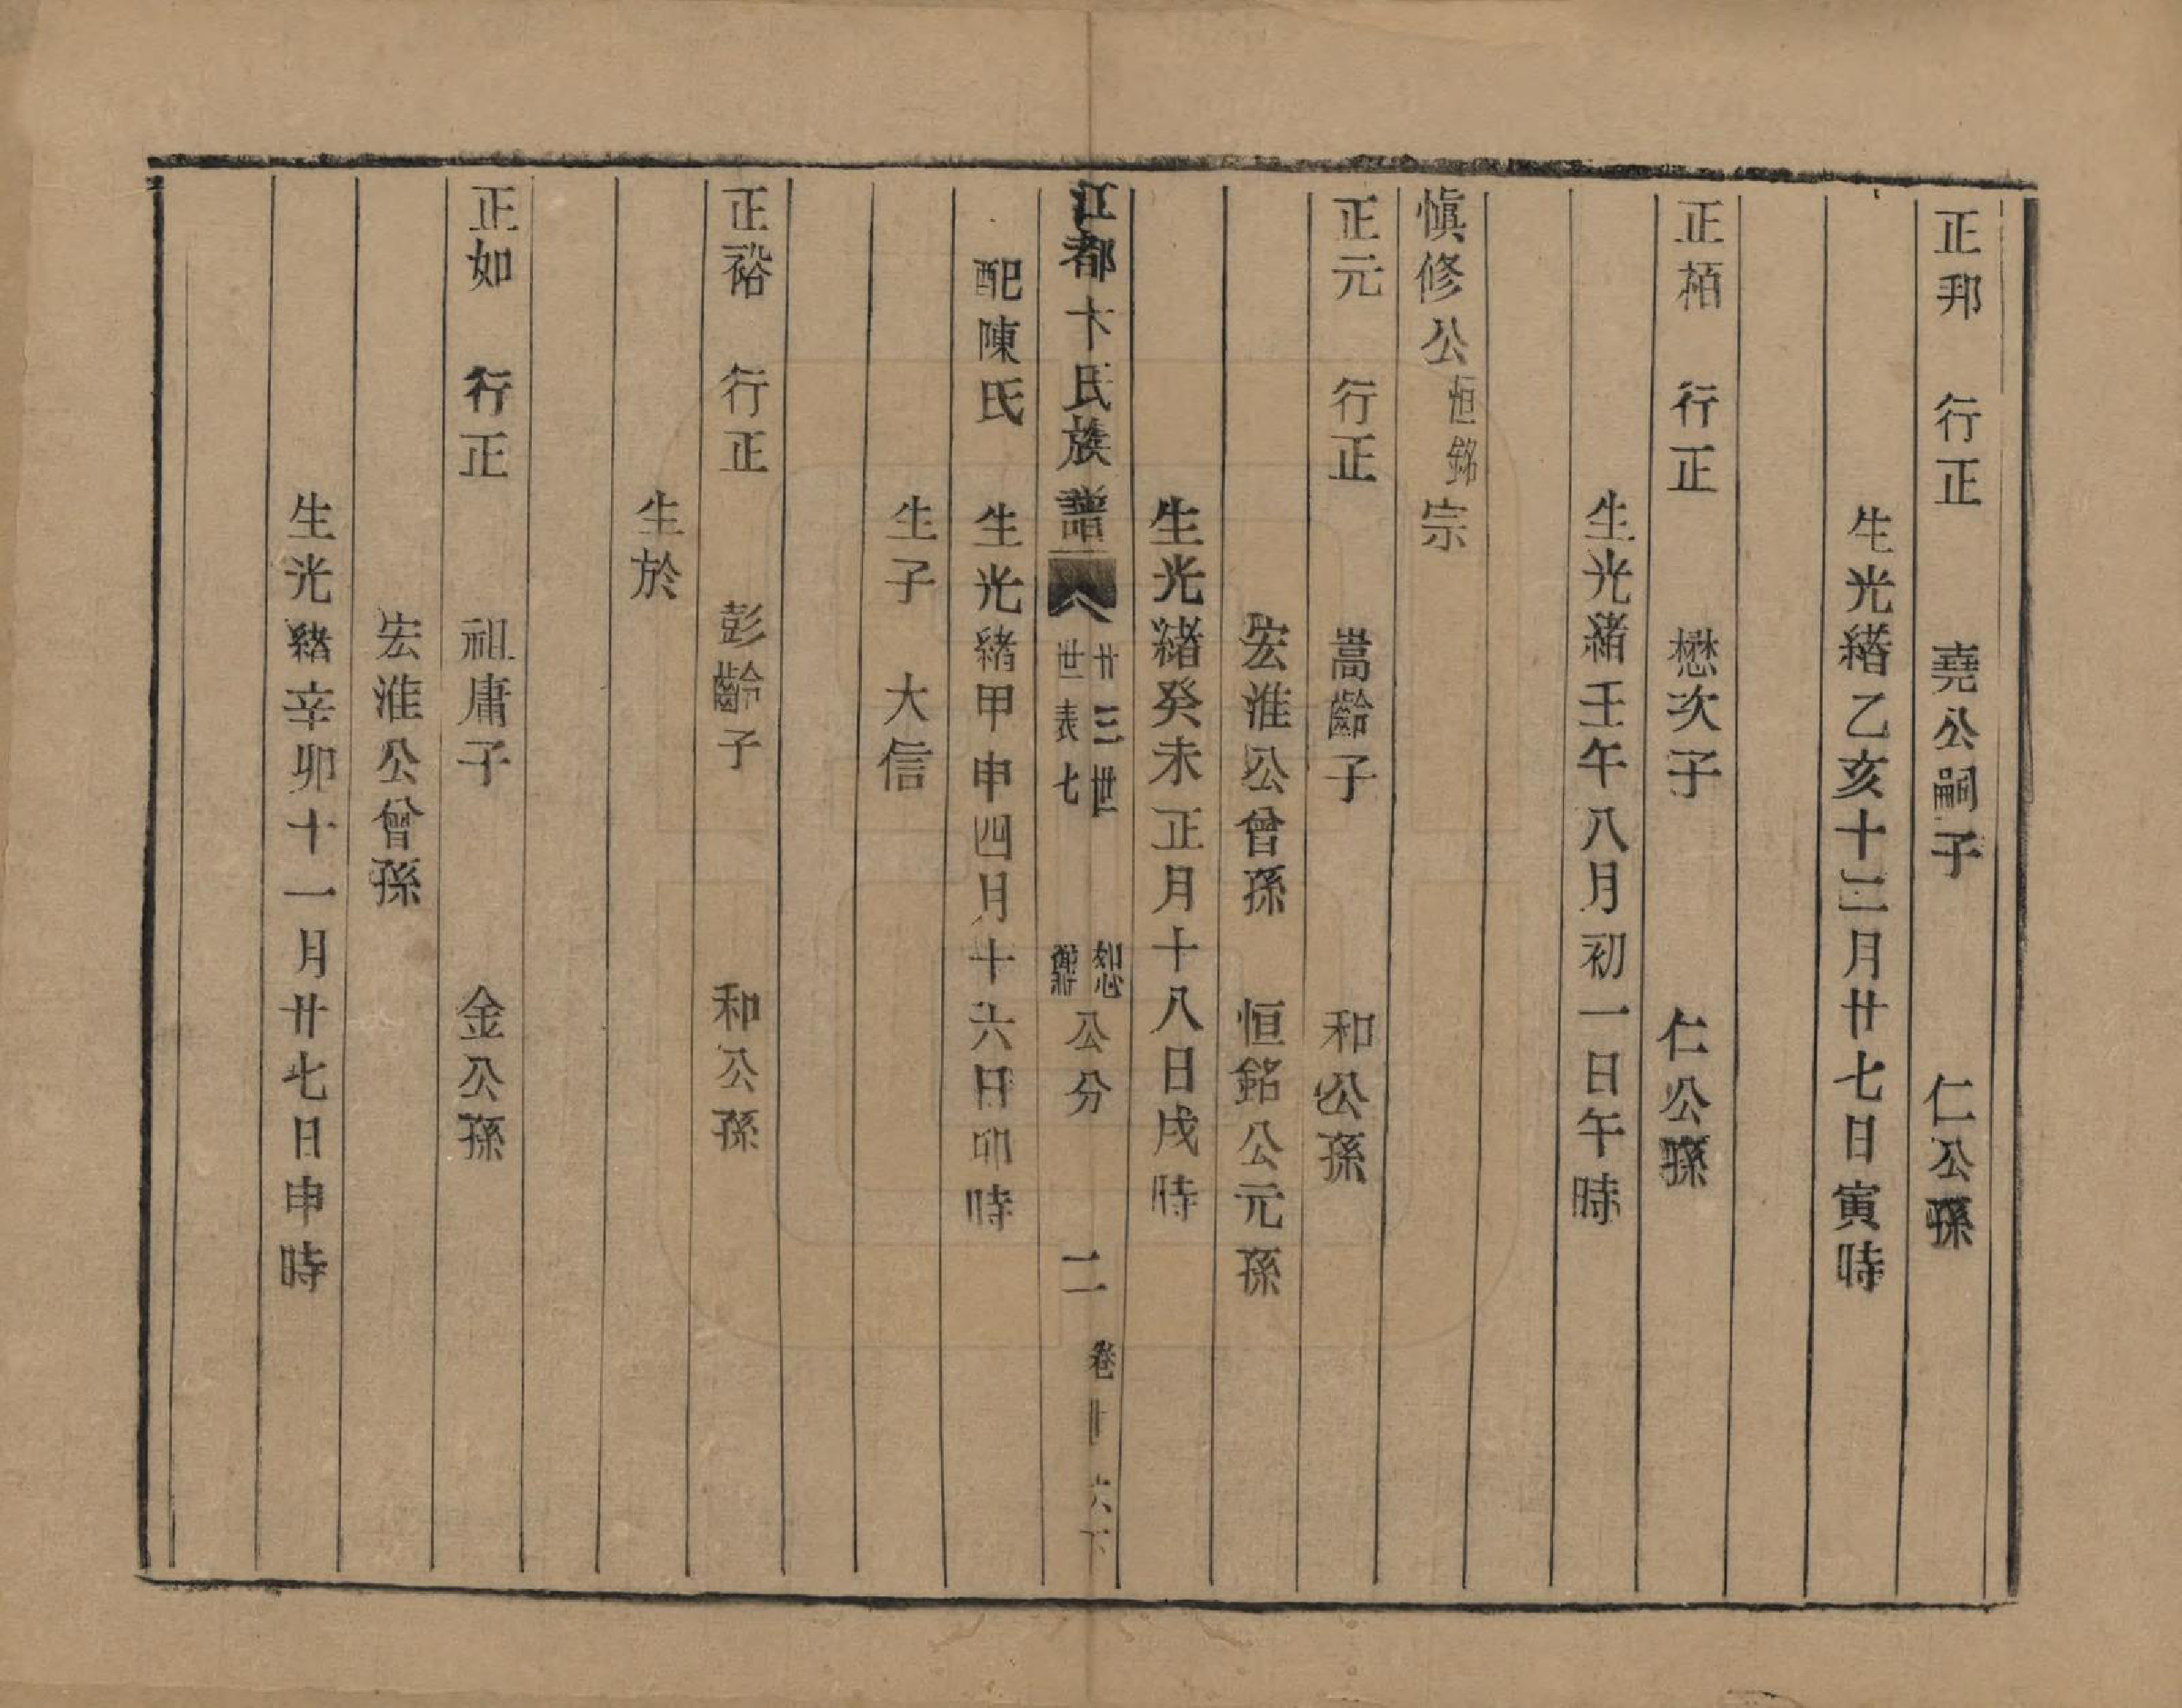 正邦　行正　堯公嗣子　仁公孫
生光緒乙亥十二月廿七日寅時
正栢　行正　懋次子　仁公孫
生光緒壬午八月初一日午時
慎修公恒銘宗
正元　行正　嵩齡子　和公孫
宏淮公曾孫　恒銘公元孫
生光緒癸未正月十八日戌時
江都卞氏族譜　廿三世　世表七　恕心　公分　二　卷廿六下
配陳氏　生光緒甲申四月十六日卯時
生子　大信
正裕　行正　彭齡子　和公孫
生於
正如　行正　祖庸子　金公孫
宏淮公曾孫
生光緒辛卯十一月廿七日申時